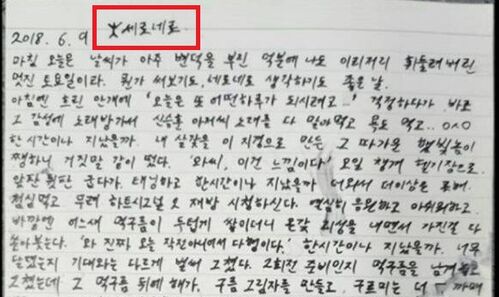 2018. 6. 9 ★세로네로
마침 오늘은 날씨가 아주 변덕을 부린 덕분에 나도 이리저리 휘둘려버린
멋진 토요일이라. 뭔가 써보기도, 네로네로 생각하기도 좋은 날.
아침엔 흐린 안개에 '오늘은 또 어떤하루가 되시려고...' 걱정하다가 바로
그 감성에 노래방가서 신승훈 아저씨 노래를 다 말아먹고 욕도 먹고.. 0x0
한시간이나 지났을까. 내 살갗을 이 지경으로 만든 그 따가운 햇빛놈이
쨍하니 거짓말 같이 떴다. '와씨, 이건 느낌이다' 오일 챙겨 헬기장으로.
앞판 뒷판 굽다가. 태닝하고 한시간이나 지났을까 더워서 더이상은 무리.
점심먹고 무려 하트시그널 2 재방 시청하신다. 열심히 응원하고 아쉬워하고.
바깥엔 어느새 먹구름이 두텁게 쌓이더니 온갖 괴성을 내면서 가진걸 다
쏟아붓는다. '와 진짜 오늘 작전아니어서 다행이다.' 한시간이나 지났을까. 너무
달렸는지 기대와는 다르게 벌써 그쳤다. 2회전 준비인지 먹구름을 남겨놓고
그쳤는데 그 먹구름 뒤에 해가, 구름 그림자를 만들고, 구르미는 너 까매